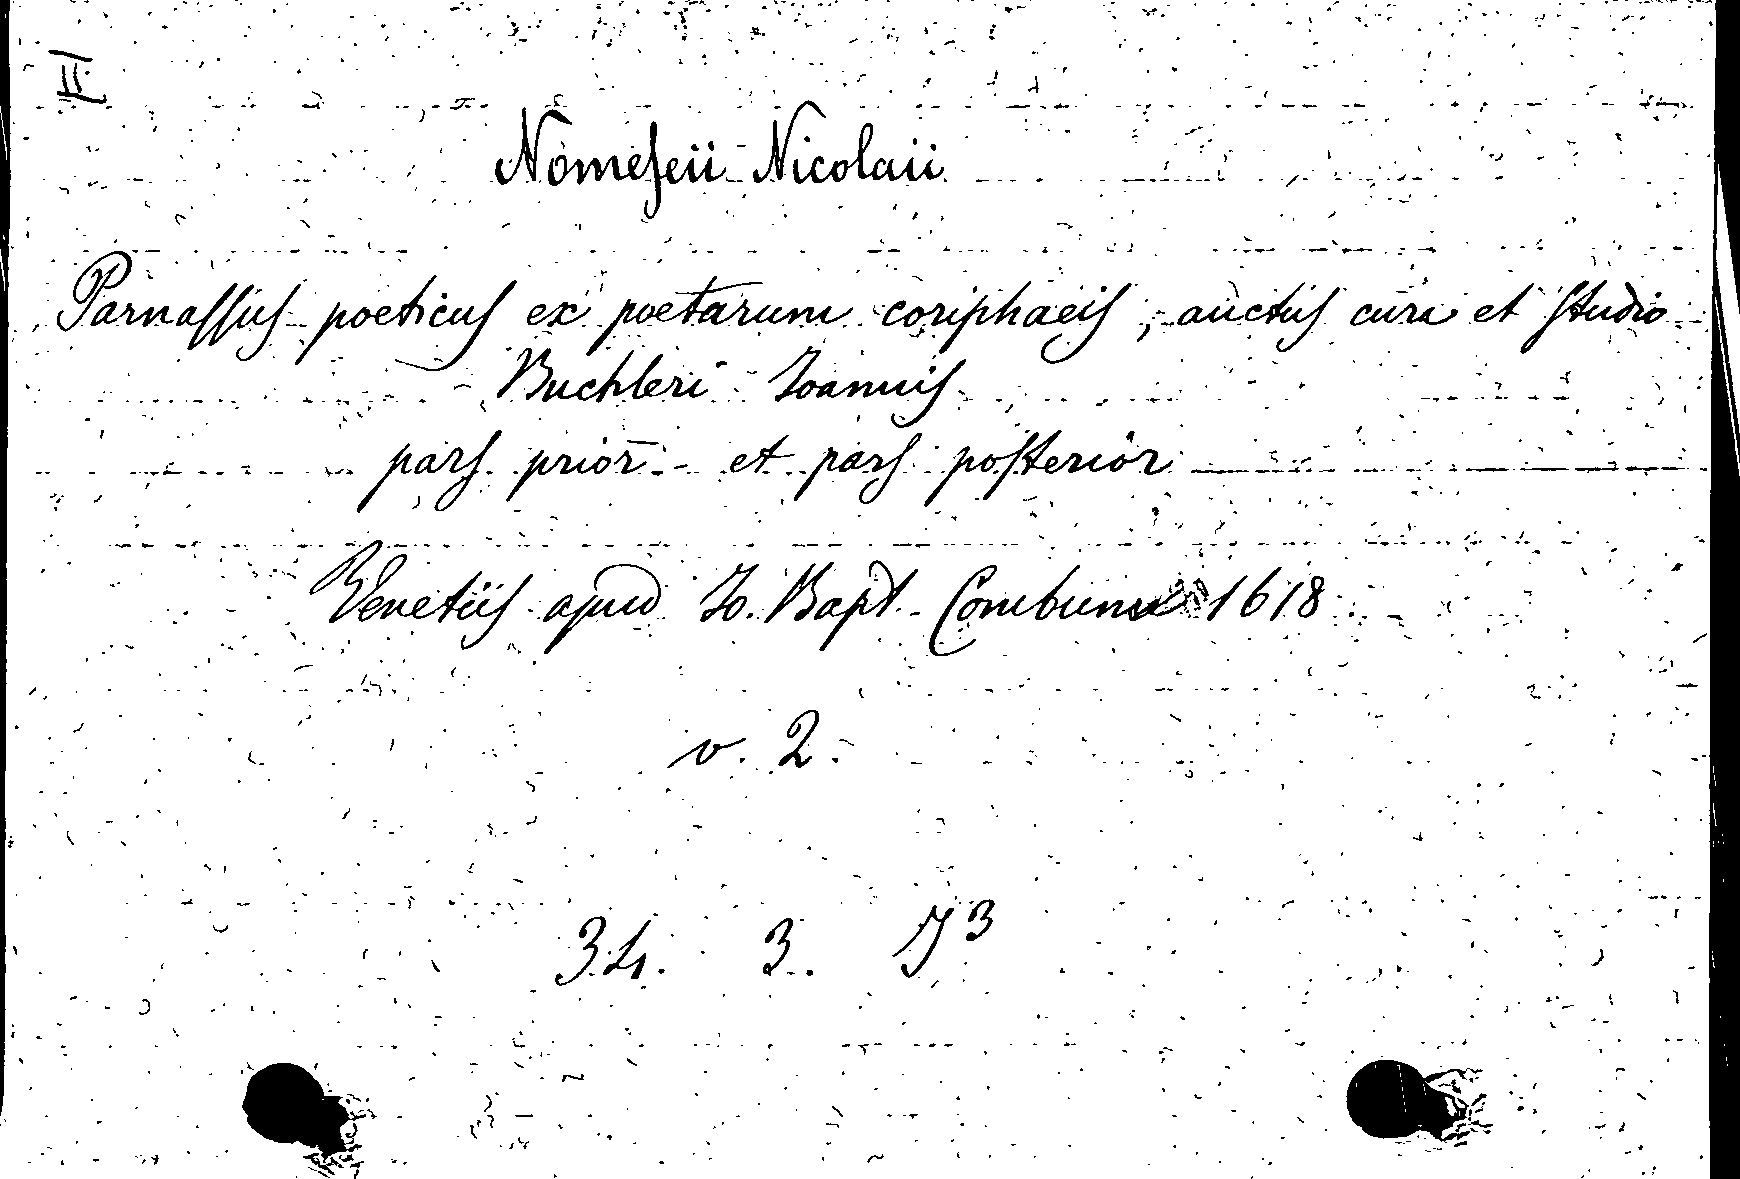 II
Nomeseii Nicolaii
Parnassus poeticus ex poetarum coriphaeis, auctus cura et studio
Buchleri Ioannis
pars prior et pars posterior
Venetiis apud Io. Bapt. Combum 1618
v. 2.
34. 3. 73